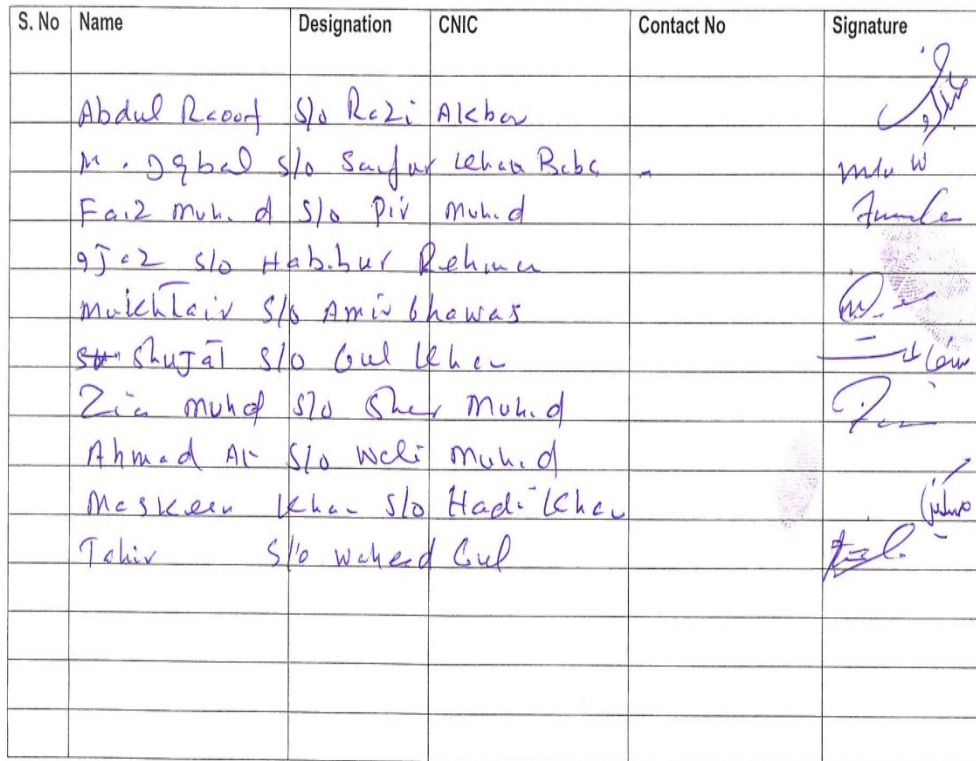 S. No Name Designation CNIC Contact No Signature
Abdul Raoof S/o Razi Akbar
M. Iqbal S/o Saifur Khan Baba -
Faiz Muh.d S/o Pir Muh.d
Ijaz S/o Habibur Rehman
Mukhtair S/o Amir Khawas
Shujat S/o Gul Khan
Zia Muhd S/o Sher Muh.d
Ahmad Ali S/o Wali Muh.d
Maskeen Khan S/o Hadi Khan مسکین
Tahir S/o Waheed Gul